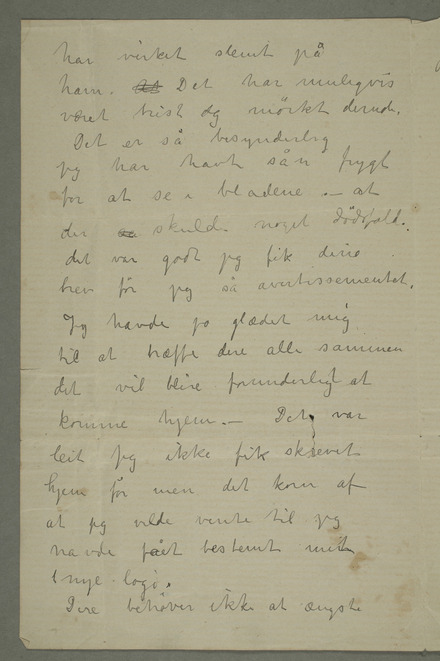 har virket slemt på
ham. Det har muligvis
været trist og mörkt derude.
Det er så besynderlig
jeg har havt sån frygt
for at se i bladene – at
der skulde noget dödsfald.
det var godt jeg fik deres
brev för jeg så avertissementet.
Jeg havde jo glædet mig
til at træffe dere alle sammen
det vil blive forunderligt at
komme hjem. – Det var
leit jeg ikke fik skrevet
hjem för men det kom af
at jeg vilde vente til jeg
havde fået bestemt mit
nye logi.
Dere behöver ikke at ængste